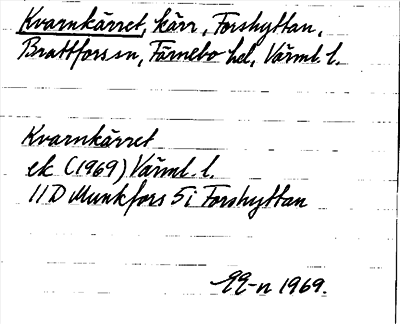 Kvarnkärret, kärr, Forshyttan,
Brattfors sn, Färnebo hd, Värml. l.
Kvarnkärret
ek (1969) Värml. l.
11D Munkfors 5i Forshyttan
EE-n 1969.